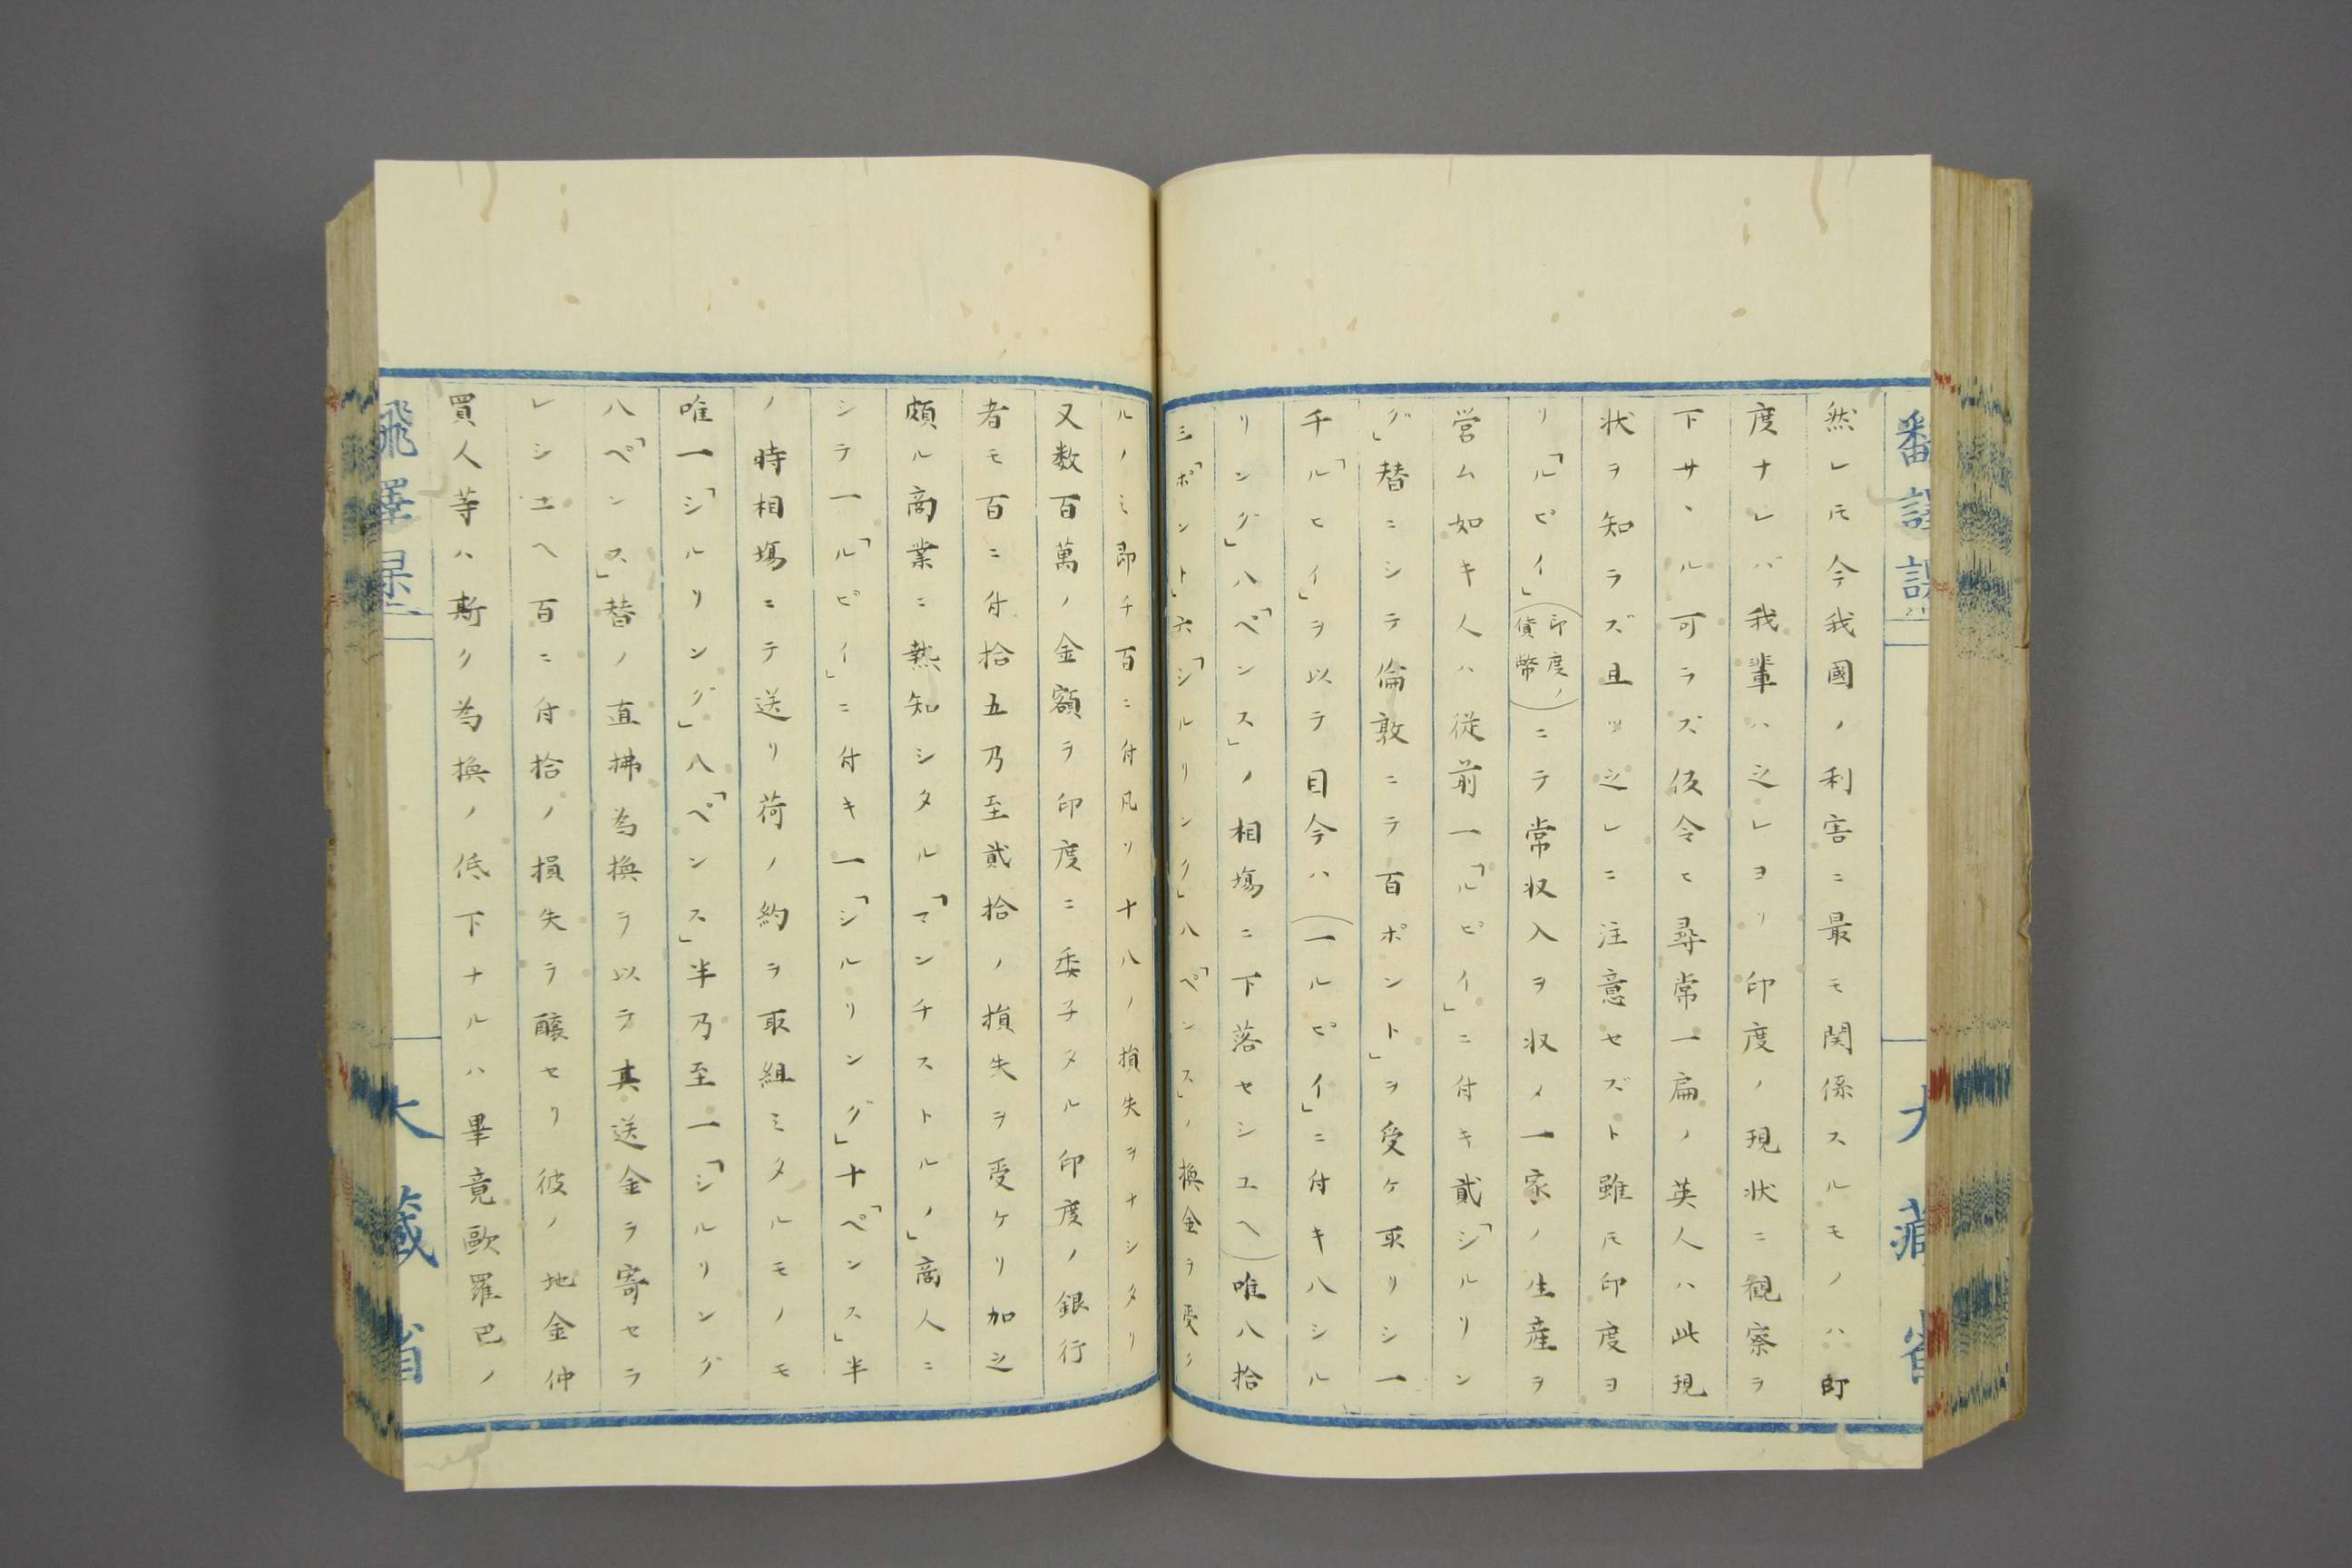 然レ𪜈今我國ノ利害ニ最モ関係スルモノハ印
度ナレバ我輩ハ之レヨリ印度ノ現状ニ観察ヲ
下サヽル可ラズ仮令ヒ尋常一扁ノ英人ハ此現
状ヲ知ラズ且ツ之レニ注意セズト雖𪜈印度ヨ
リ「ルピイ」(印度ノ貨幣)ニテ常収入ヲ収メ一家ノ生産ヲ
営ム如キ人ハ従前一「ルピイ」ニ付キ貳「シルリン
グ」替ニシテ倫敦ニテ百ポント」ヲ受ケ取リシ一
千「ルヒイ」ヲ以テ目今ハ(一ルピイ」ニ付キ八シル
リング」八「ペンス」ノ相場ニ下落セシユヘ)唯八拾
三「ポント」六「シルリング」八「ペンス」ノ換金ヲ受ク
ルノミ即チ百ニ付凡ソ十八ノ損失ヲナシタリ
又数百萬ノ金額ヲ印度ニ委子タル印度ノ銀行
者モ百ニ付拾五乃至貳拾ノ損失ヲ受ケリ加之
頗ル商業ニ熟知シタル「マンチストルノ」商人ニ
シテ一「ルピイ」ニ付キ一「シルリング」十「ペンス」半
ノ時相場ニテ送リ荷ノ約ヲ取組ミタルモノモ
唯一「シルリング」八「ペンス」半乃至一「シルリング
八「ペンス」替ノ直拂為換ヲ以テ其送金ヲ寄セラ
レシユヘ百ニ付拾ノ損失ヲ醸セリ彼ノ地金仲
買人等ハ斯ク為換ノ低下ナルハ畢竟歐羅巴ノ
大藏省